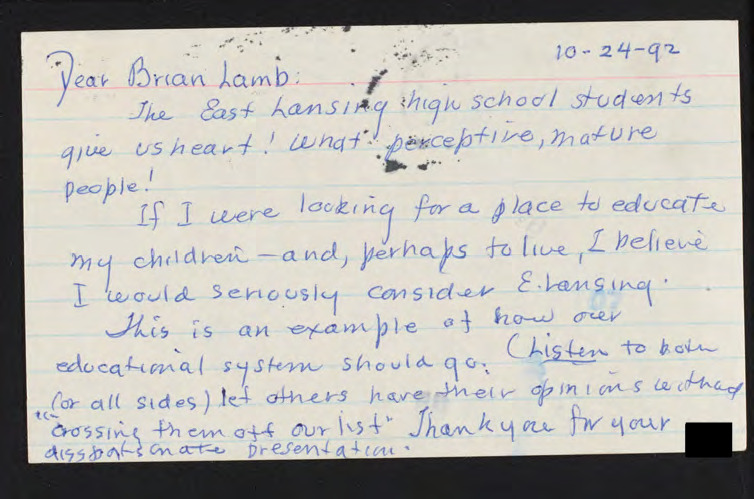 10-24-92
Dear Brian Lamb:
The East Lansing high school students
give us heart! What perceptive, mature
people!
If I were looking for a place to educate
my children - and, perhaps to live, I believe
I would seriously consider E. Lansing.
This is an example of how our
educational system should go. (Listen to both
(or all sides) let others have their opinions without
"crossing them off our list" Thank you for your
disspationate presentation.